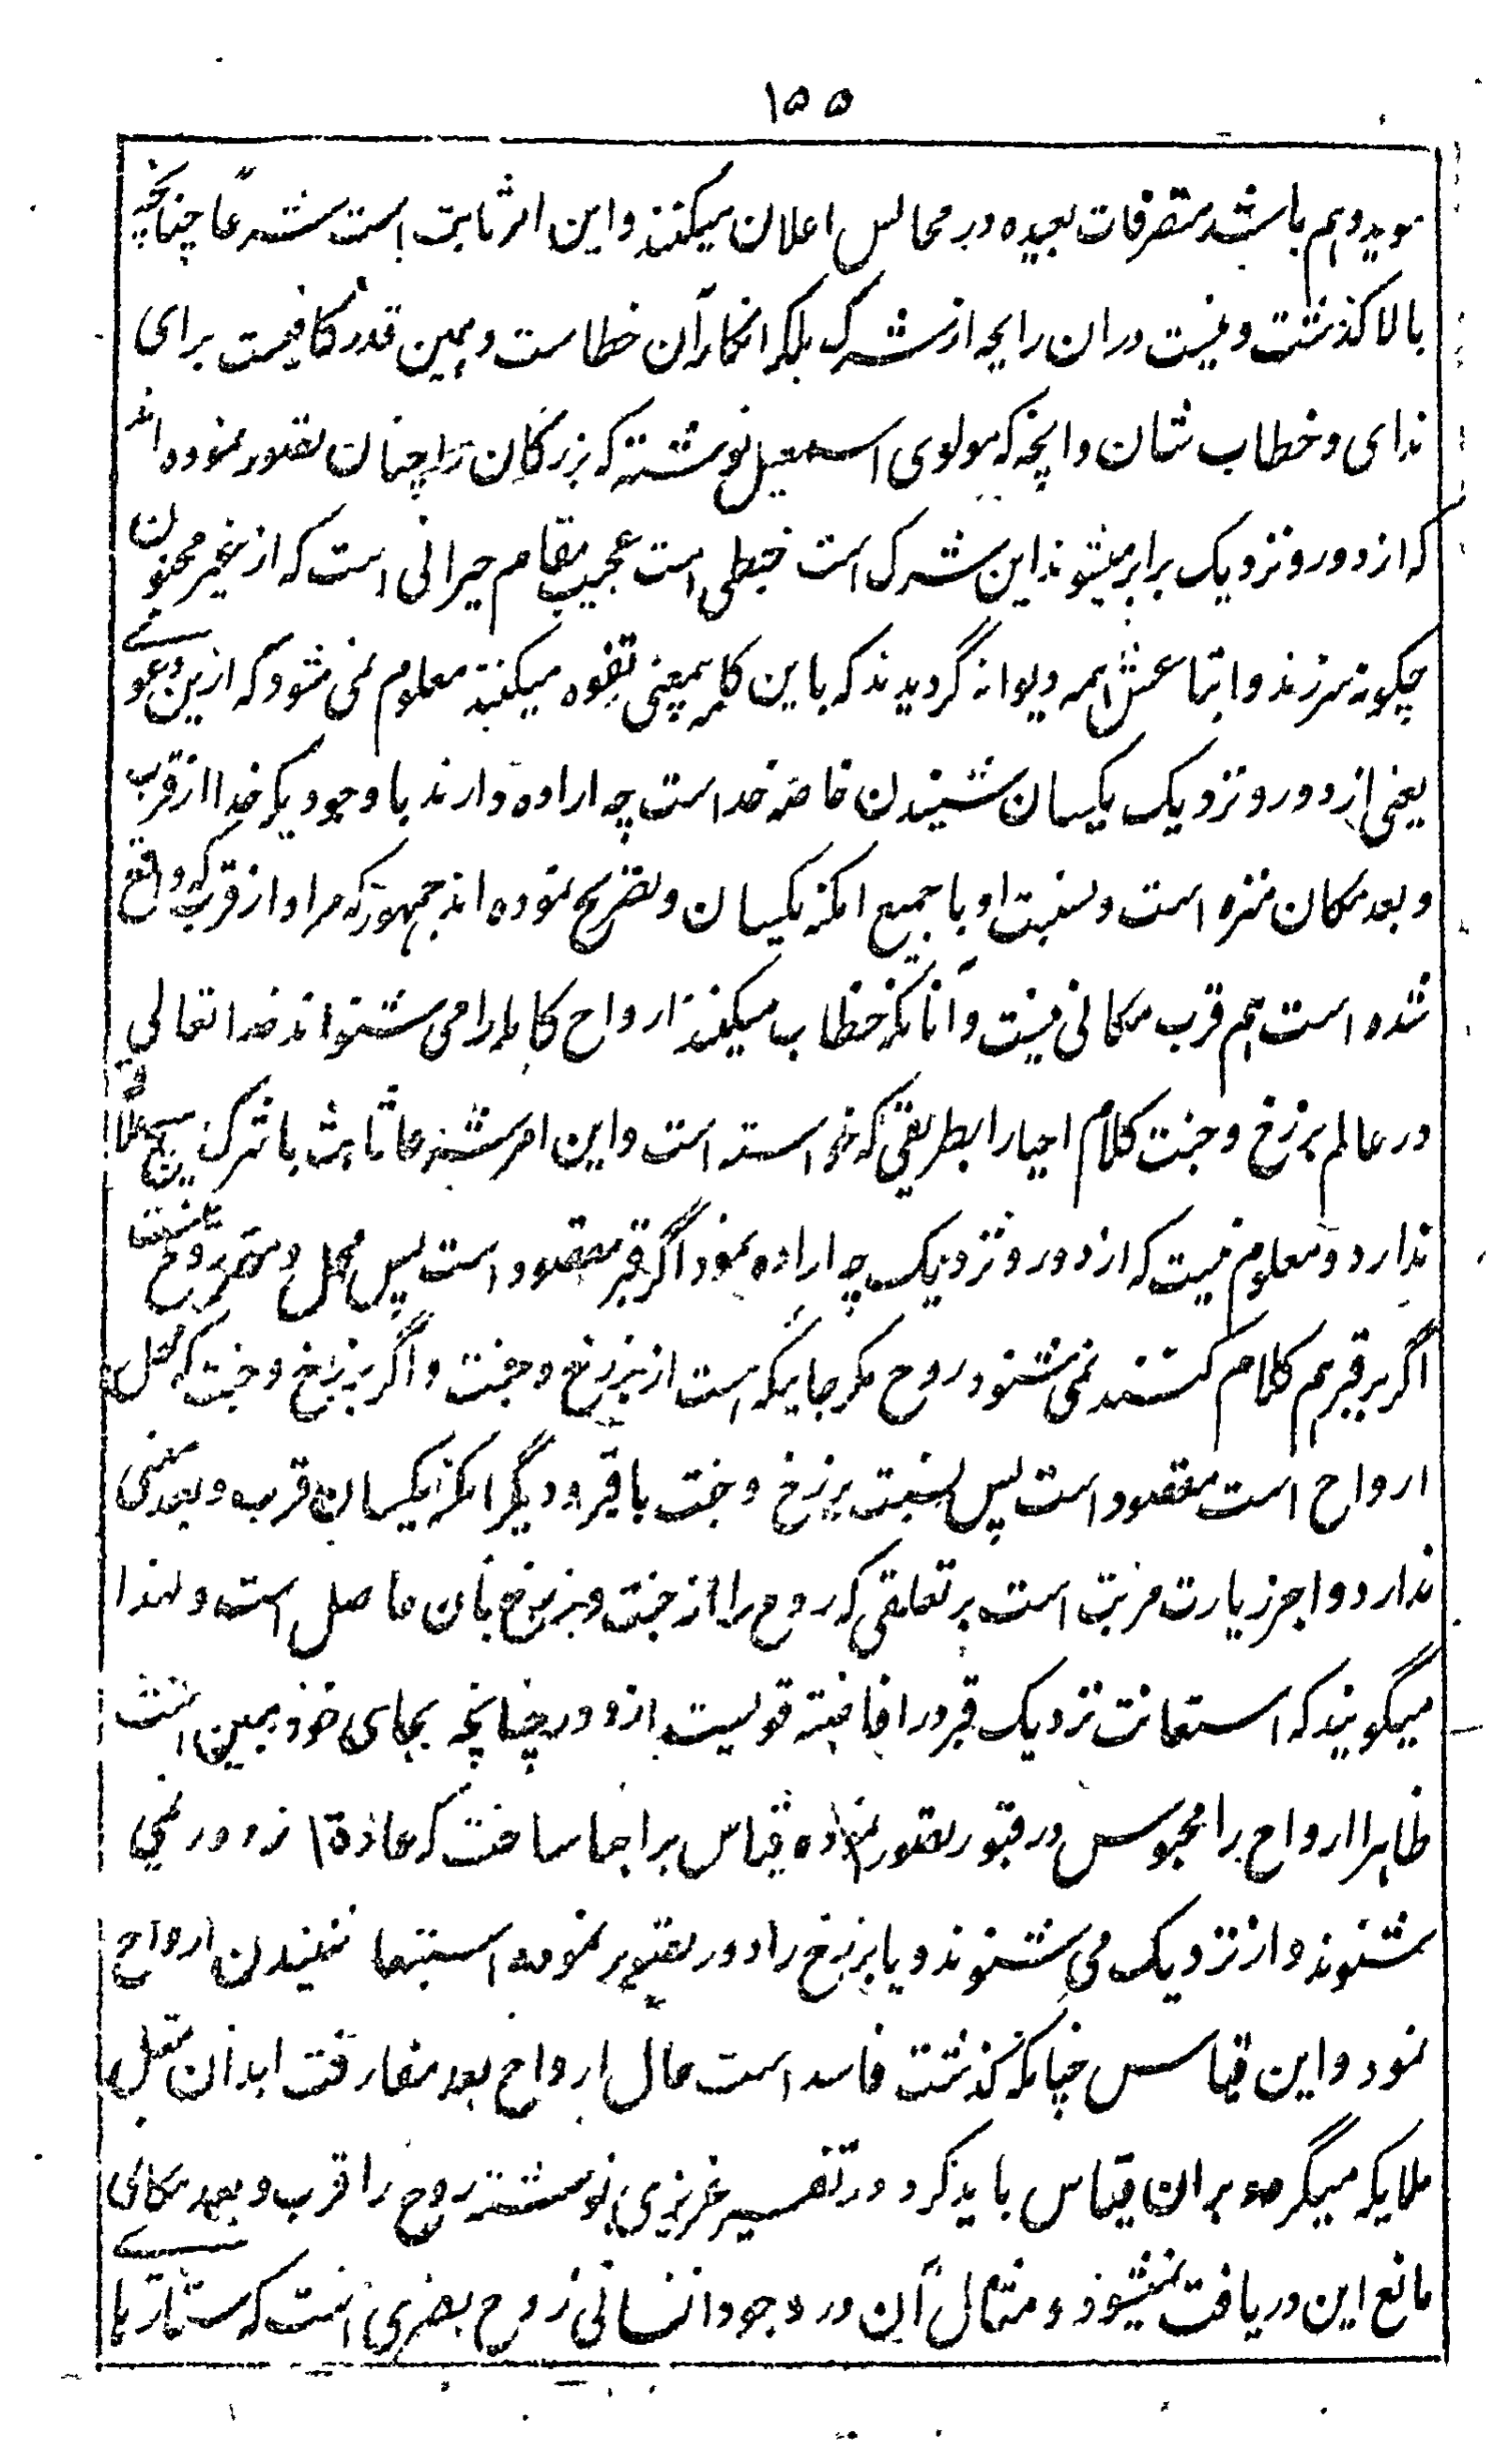 ۱۵۵
موید وہم باشد متصرفات بعیده در محالس اعلان میکنند و این اثر ثابت است شرعًا چنانچه
بالا کذشت و نیست دران رایحه از شرک بلکه انکار آن خطاست و ہمین قدر کافیست برای
ندای و خطاب شان و اپنچه که مولوی اسمعیل نوشته که بزرکان را چنان تصور نموده اند
که از دور و نزدیک برابر میشنوند این شرک است خبطی است عجیب مقام حیرانی است که از غیر مجنون
چکونه سر زند و اتباعش ہمه دیوانه گردیدند که باین کلمه بمعنی تفوه میکنند معلوم نمی شود که ازین دعوے
یعنی از دور و نزدیک یکسان شنیدن خاصه خداست چه اراده دارند با وجودیکه خدا از قرب
و بعد مکان منزه است و نسبت او با جمیع امکنه یکسان و تصریح نموده اند جمهور که مراد از قرب که واقع
شده است ہم قرب مکانی نیست و آنانکه خطاب میکنند ارواح کامله را می شنواند خدا تعالی
در عالم برزخ و جنت کلام احیا را بطریقی که خواسته است و این امر شرعا ثابت با شرک ہیچ علاقه
ندارد و معلوم نیست که از دور و نزدیک چه اراده نمود اگر قبر مقصود است پس محل و مقر روح نیست
اگر بر قبر ہم کلام کنند نمی شنود روح مکر جائیکه است از برزخ و جنت و اگر برزخ و جنت که محل
ارواح است مقصود است پس نسبت برزخ و جنت با قبر و دیگر امکنه یکسان قرب و بعد معنی
ندارد و اجر زیارت مرتب است بر تعلقی که روح را از جنت و برزخ بآن حاصل است و لہذا
میگویند که استعانت نزدیک قبر در افاضه قویست از دور چنانچه بجای خود ہمین است
ظاہرا ارواح را محبوس در قبور تصور نموده قیاس بر احیا ساخت که عادة از دور نمی
شنوند و از نزدیک می شنوند و یا برزخ را دور تصور نموده استبعاد شنیدن ارواح
نمود و این قیاس چنانکه گذشت فاسد است حال ارواح بعد مفارقت ابدان مثل
ملایکه میگردد بران قیاس باید کرد در تفسیر عزیزی نوشته روح را قرب و بعد مکانی
مانع این دریافت نمیشود و مثال آن در وجود انسانی روح بصری است که ستارہاے